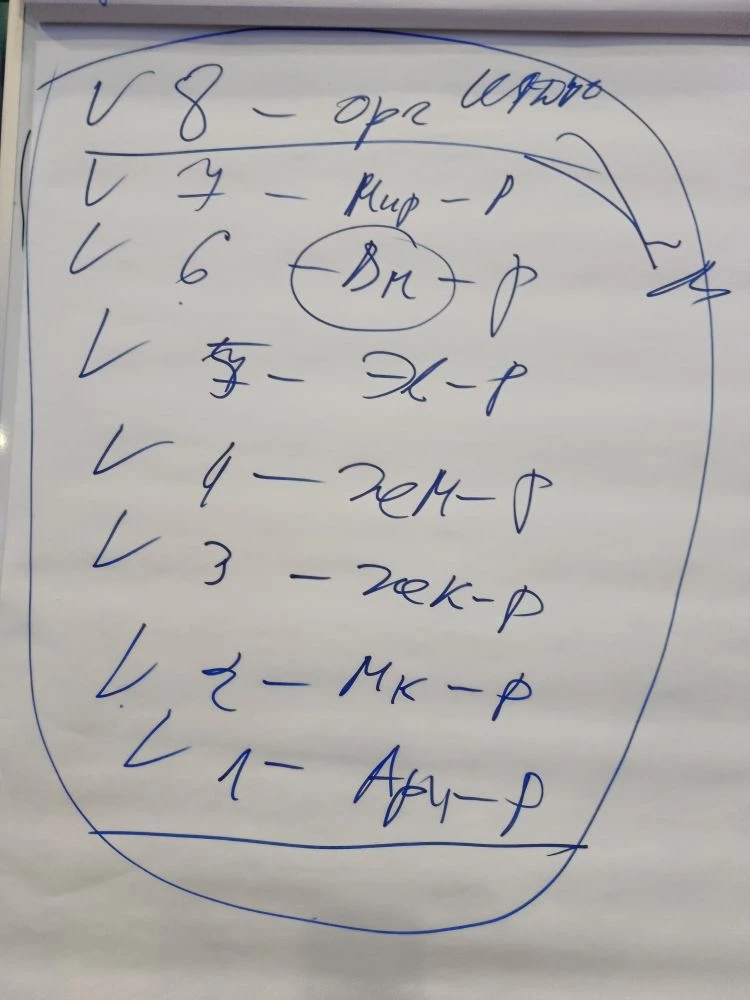 V 8 - орг
V 7 - Мир - р
V 6 - Вн - р
V 5 - Эк - р
V 4 - чем - р
V 3 - чек - р
V 2 - Мк - р
V 1 - Арч - р